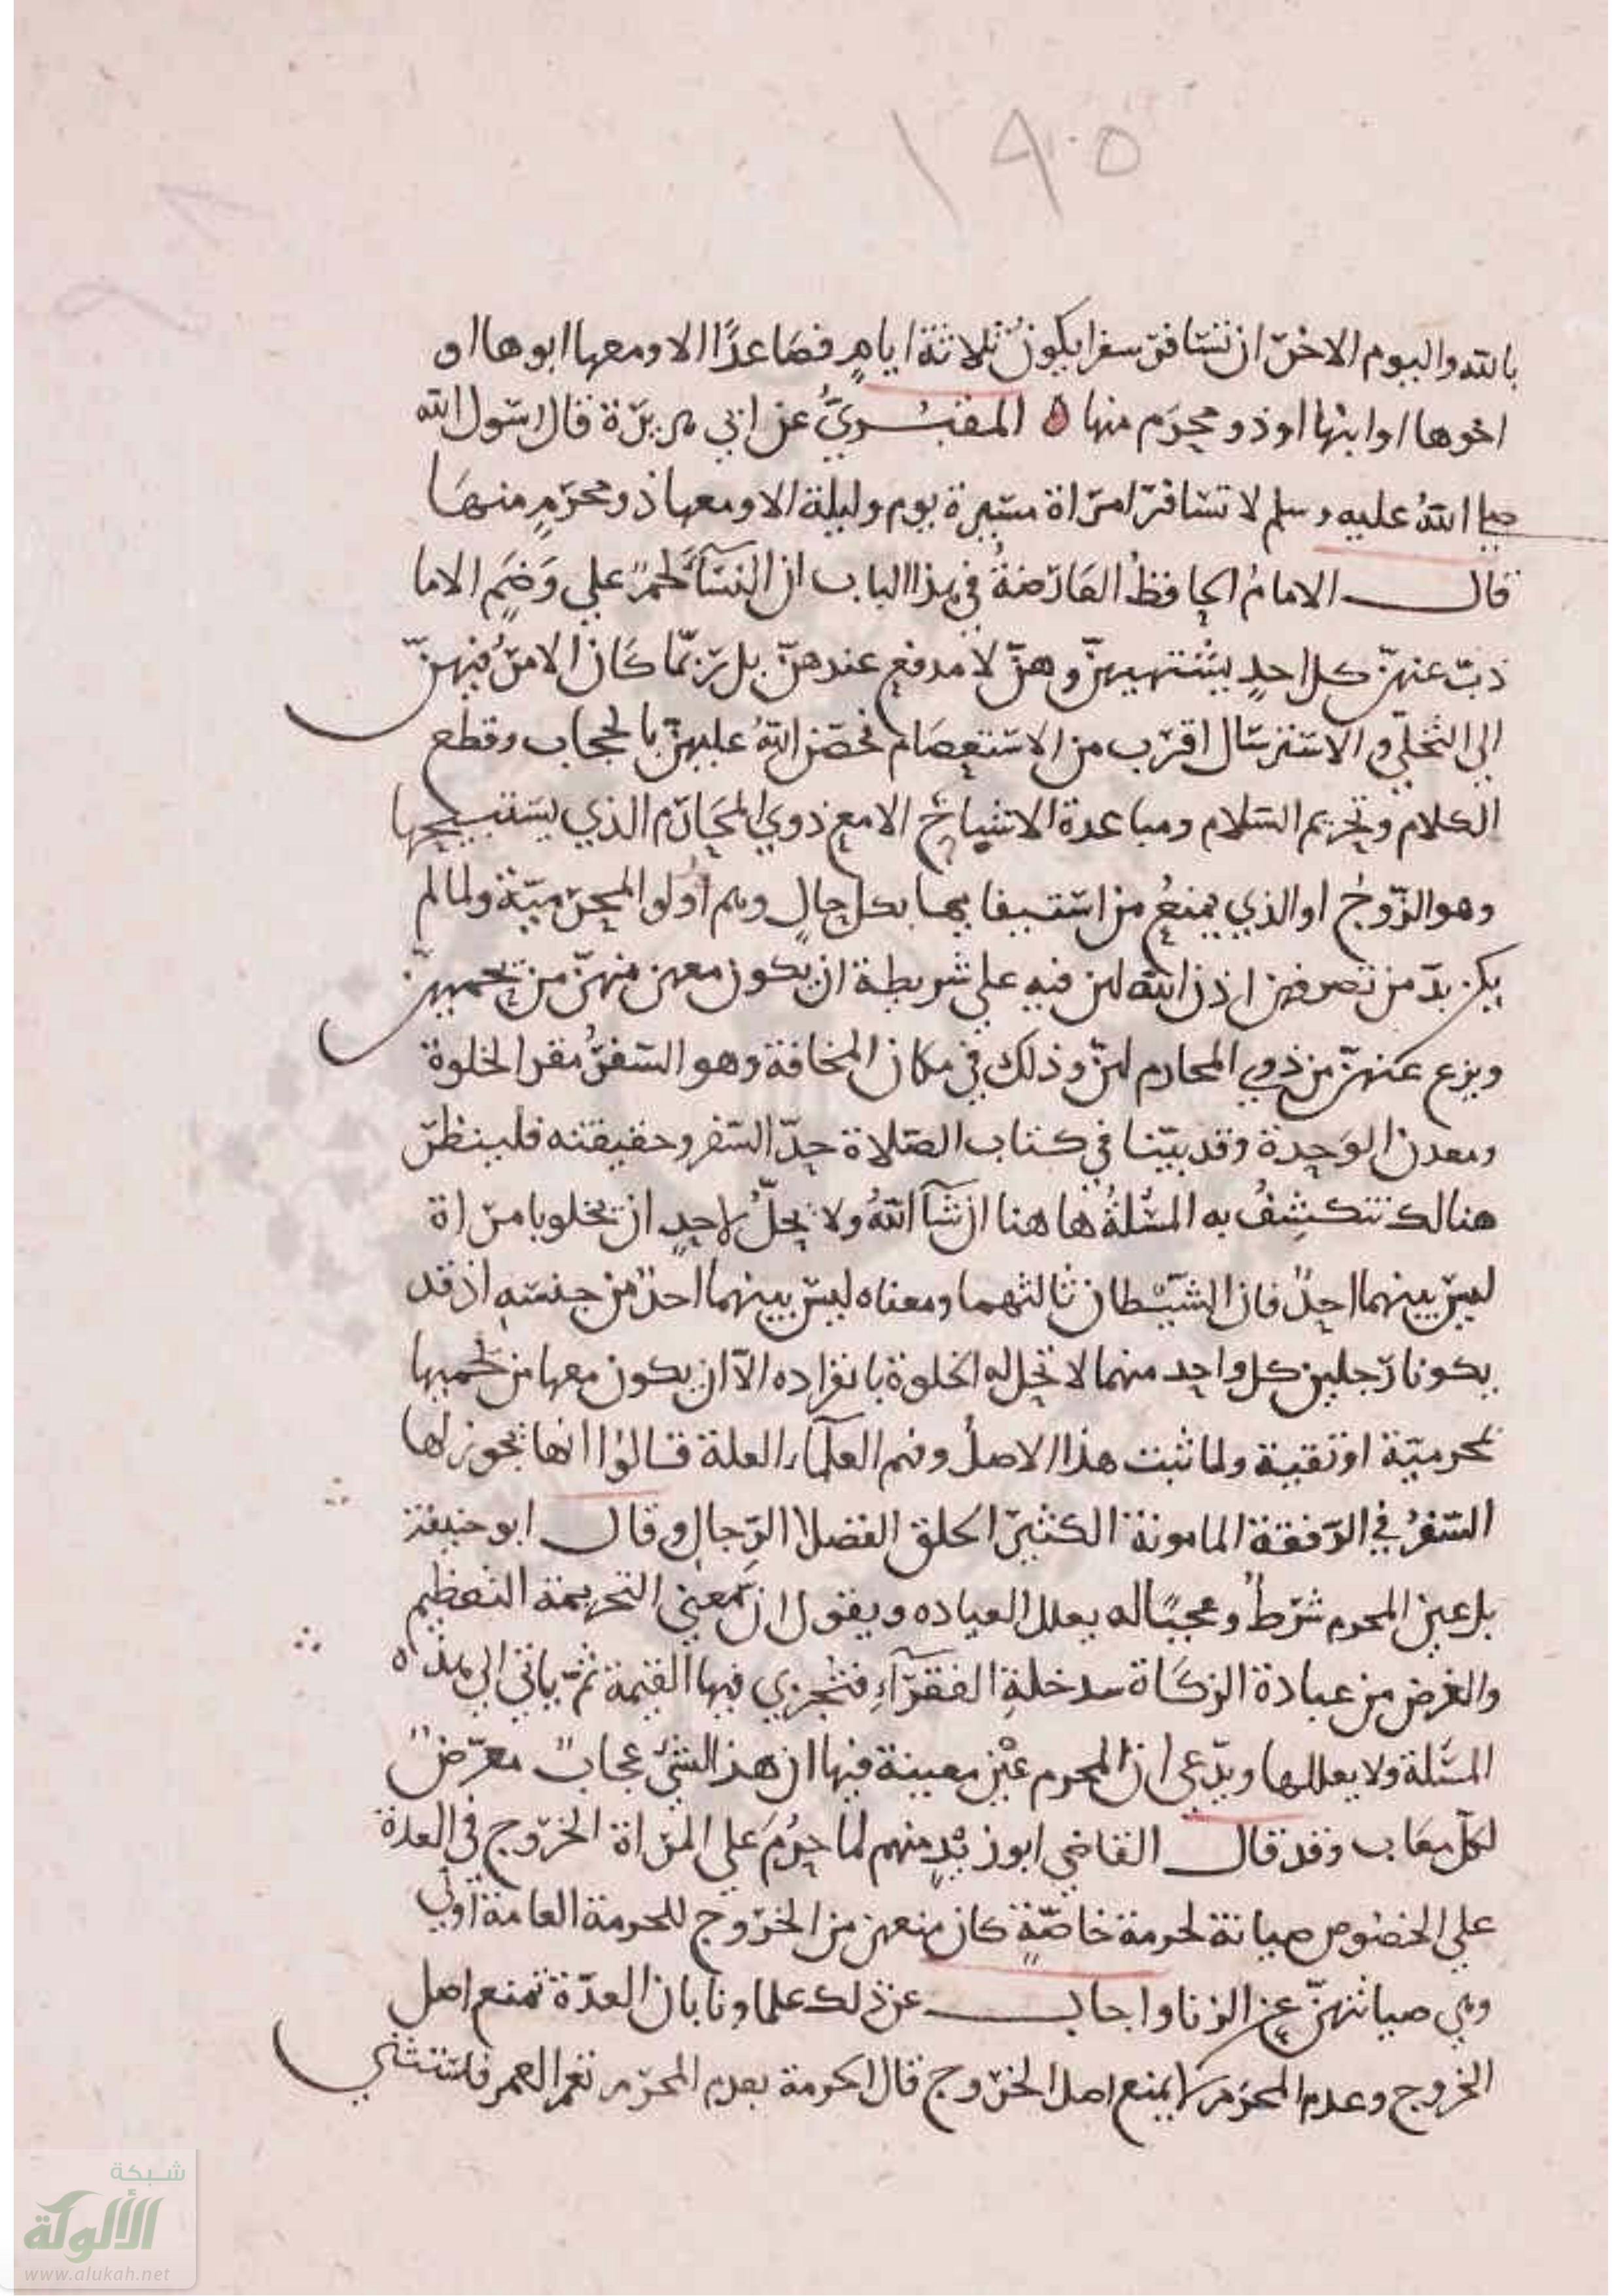 ١٩٠٥
بالله واليوم الاخر ان تسافر سفرا يكون ثلاثة ايام فصاعدًا الا ومعها ابوها او
اخوها او ابنها او ذو محرم منها ه المقبُري عن ابي هريرة قال رسول الله
صلى الله عليه وسلم لا تسافر امراة مسيرة يوم وليلة الا ومعها ذو محرم منها
قال الامام الحافظ العارضة في هذا الباب ان النسآ لحم على وضم الا ما
ذب عنهن كل احد يشتهيهن وهن لا مدفع عندهن بل ربما كان الامر فيهن
الى التخلي والاسترسال اقرب من الاستعصام فحصن الله عليهن بالحجاب وقطع
الكلام وتحريم السلام ومباعدة الاشباح الا مع ذوي المحارم الذي يستبيحها
وهو الزوج او الذي يمنع من استيفائها بكل حال وهم أولوا المحرمية ولما لم
يكن بد من تصرفهن اذن الله لهن فيه على شريطة ان يكون معهن منهن من يحميهن
ويزع عنهن من ذوي المحارم لهن وذلك في مكان المخافة وهو السفر مقر الخلوة
ومعدن الوحدة وقد بينا في كتاب الصلاة حد السفر وحقيقته فلينظر
هنالك تنكشف به المسئلة ها هنا ان شآ الله ولا يحل لاحد ان يخلو بامراة
ليس بينهما احد فان الشيطان ثالثهما ومعناه ليس بينهما احد من جنسه اذ قد
يكونا رجلين كل واحد منهما لا تحل له الخلوة بانفراده الا ان يكون معها من يحميها
بمحرمية او تقية ولما ثبت هذا الاصل وفهم العلمآء العلة قالوا انها يجوز لها
السفر في الرفقة المامونة الكثير الخلق الفضلا الرجال وقال ابو حنيفة
بل عين المحرم شرط وعجبًا له يعلل العباده ويقول ان معنى التحريمة التعظيم
والغرض من عبادة الزكاة سد خلة الفقرآء فتجزي فيها القيمة ثم ياتي الى هذه
المسئلة ولا يعللها ويدعي ان المحرم عين معينة فيها ان هذا لشئ عجاب معرض
لكل معاب وقد قال القاضي ابو زيد منهم لما حرُم على المراة الخروج في العدة
على الخصوص صيانة لحرمة خاصة كان منعهن من الخروج للحرمة العامة اولى
وهي صيانتهن عن الزنا واجاب عن ذلك علماونا بان العدة تمنع اصل
الخروج وعدم المحرم لا يمنع اصل الخروج قال الحرمة بعدم المحرم تعم العمر فلتستثني
شبكة
الألوكة
www.alukah.net